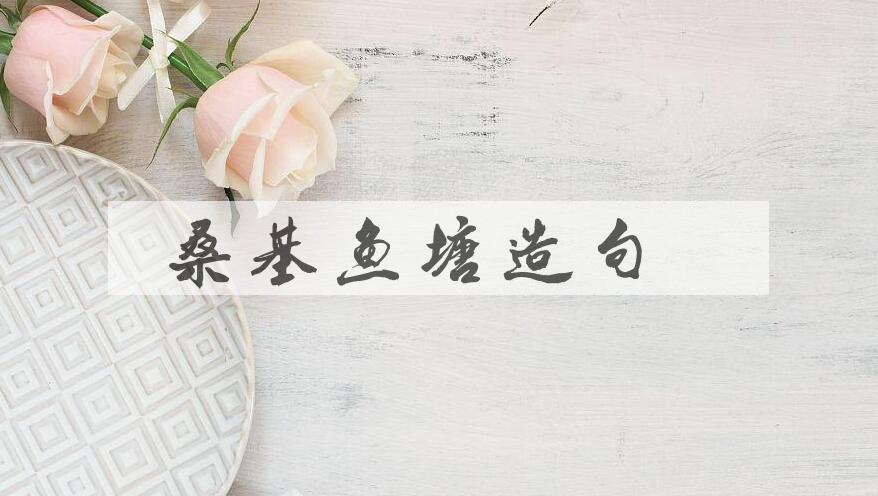 桑基鱼塘造句